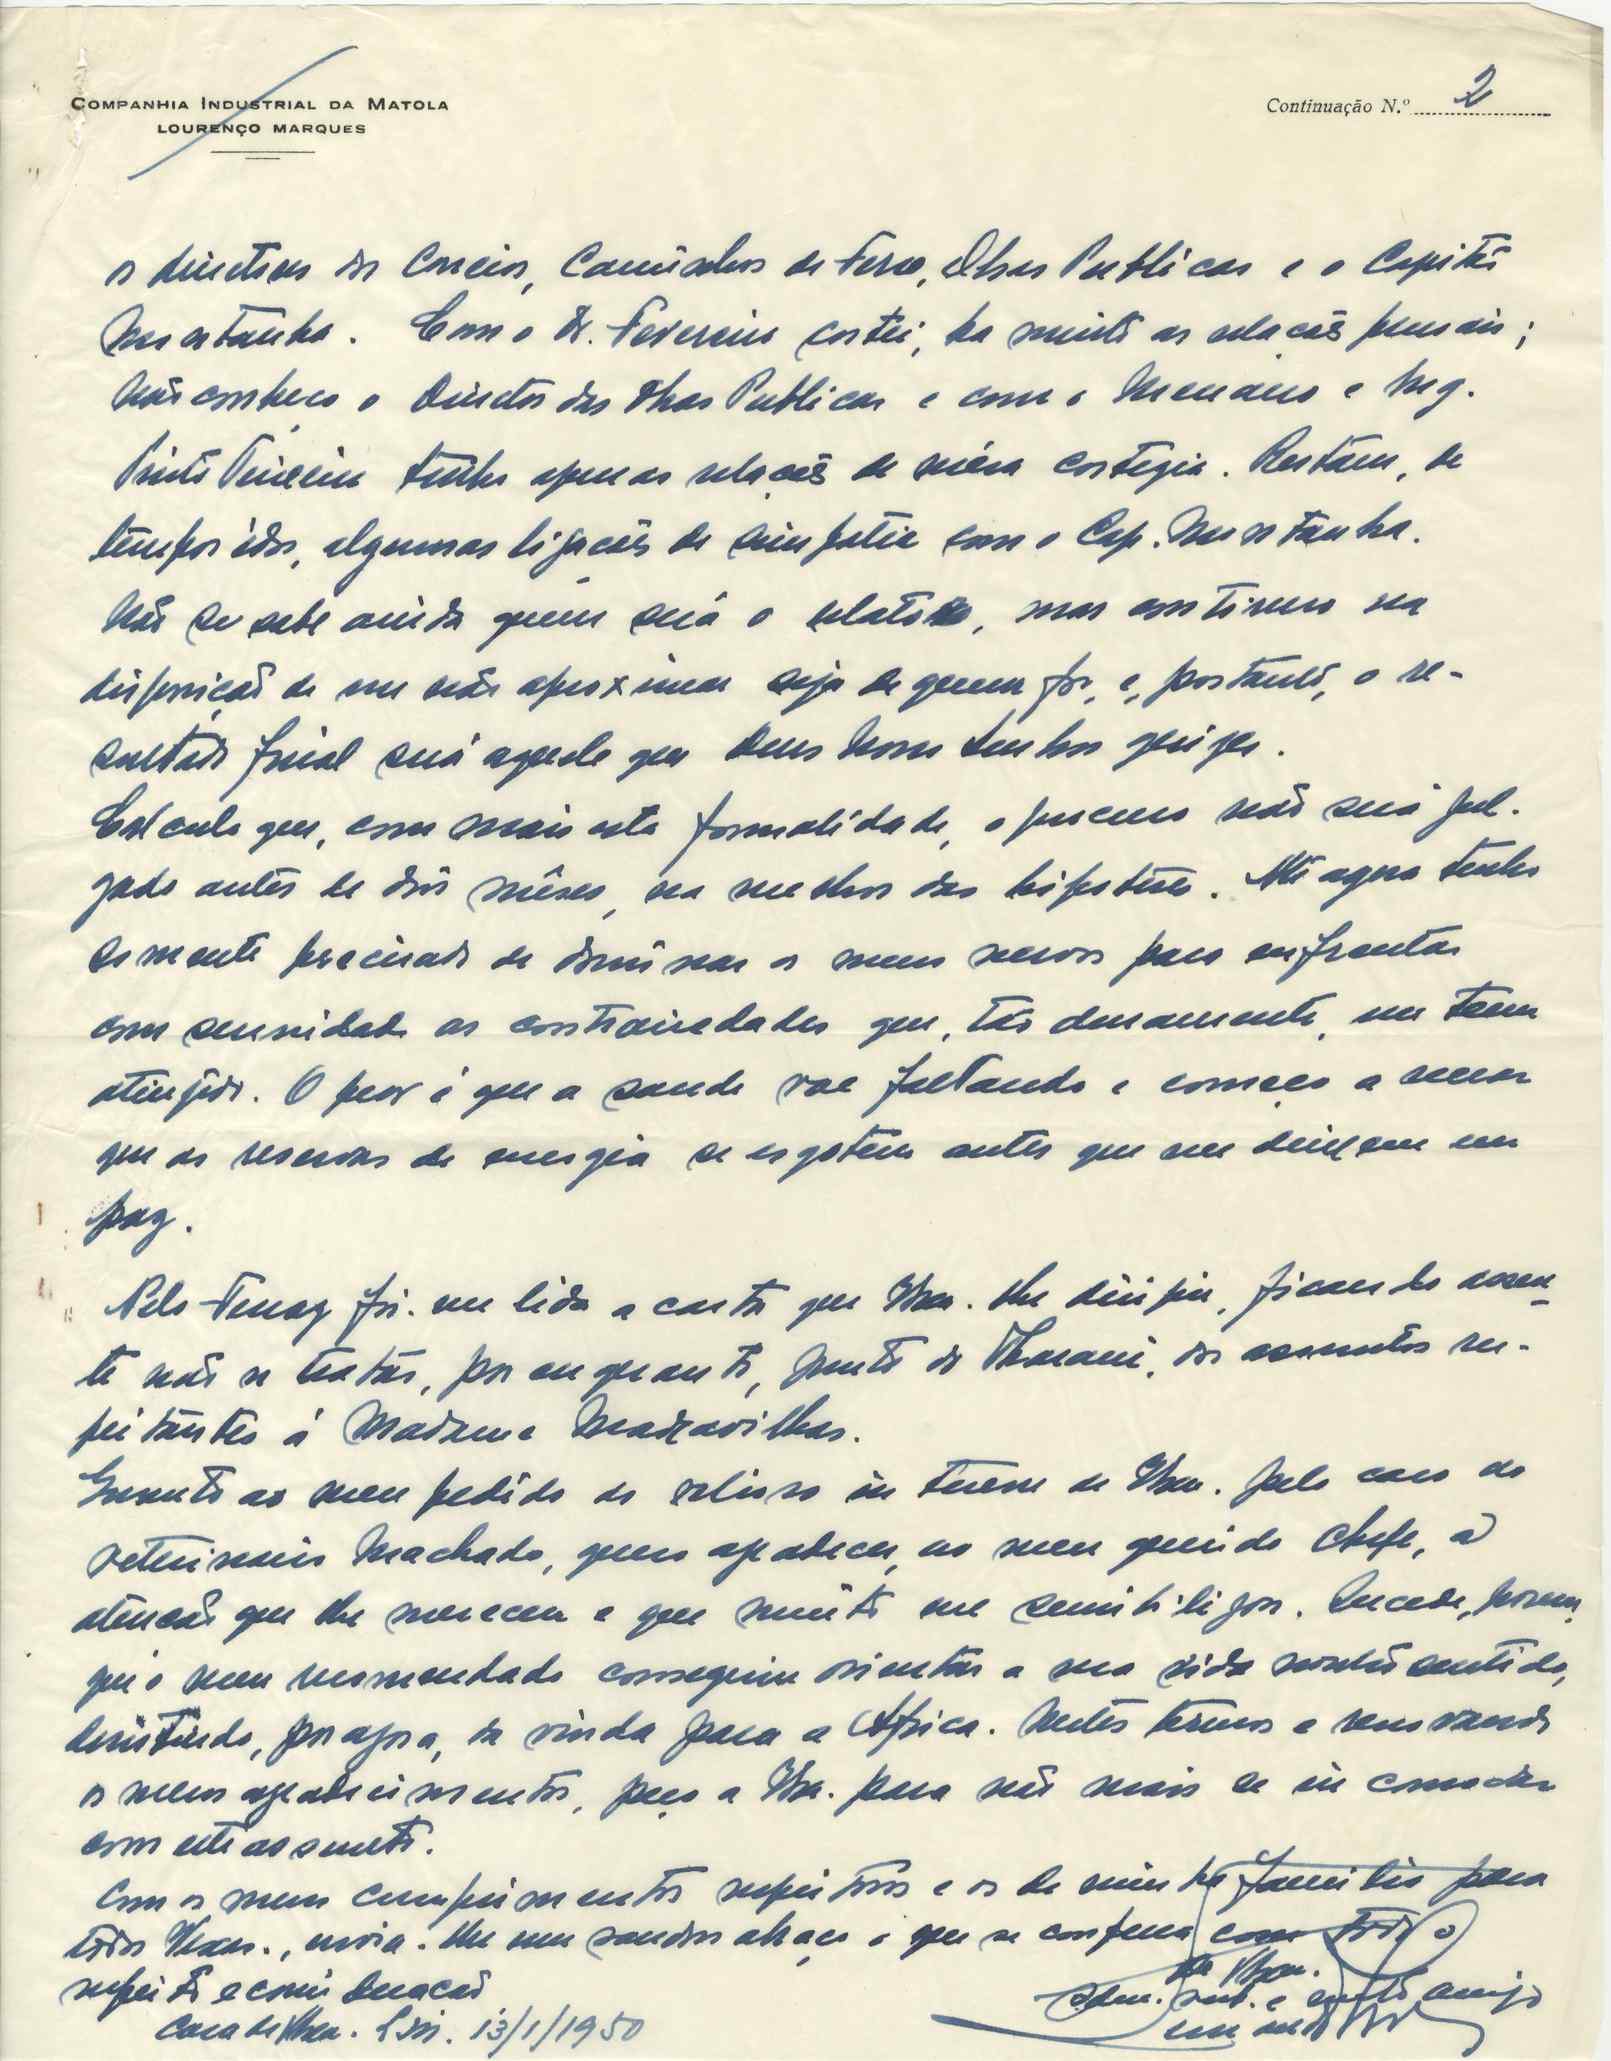 COMPANHIA INDUSTRIAL DA MATOLA
LOURENÇO MARQUES
Continuação N.º 2
os directores dos Correios, Caminhos de Ferro, Obras Publicas e o Capitão
Montanha. Com o Dr. Fevereiro cortei, ha muito as relações pessoais;
Não conheço o Director das Obras Publicas e com o Menano e Eng.
Pinto Teixeira tenho apenas relações de méra cortezia. Restam, de
tempos idos, algumas ligações de simpatia com o Cap. Montanha.
Não se sabe ainda quem será o relator, mas continuo na
disposição de me não aproximar seja de quem fôr, e, portanto, o re-
sultado final será aquele que Deus Nosso Senhor quizer.
Calculo que, com mais esta formalidade, o processo não será jul-
gado antes de dois mêses, na melhor das hipoteses. Até agora tenho
somente precisado de dominar os meus nervos para enfrentar
com serenidade as contrariedades que, tão duramente, me teem
atingido. O peor é que a saude vae faltando e começo a recear
que as reservas de energia se esgotem antes que me deixem em
paz.
Pelo Tenaz foi-me lida a carta que VExa. lhe dirigiu, ficando assen-
te não se tratar, por enquanto, junto do Tharani, dos assuntos res-
peitantes á Madame Maravilhas.
Quanto ao meu pedido do valioso interesse de VExa. pelo caso do
veterinario Machado, quero agradecer, ao meu querido Chefe, a
atenção que lhe mereceu e que muito me sensibilizou. Sucede, porem,
que o meu recomendado conseguiu orientar a sua vida noutro sentido,
desistindo, por agora, da vinda para a Africa. Nestes termos e renovando
os meus agradecimentos, peço a VExa. para não mais se incomodar
com este assunto.
Com os meus cumprimentos respeitosos e os de minha familia para
todos VExas., envia-lhe um saudoso abraço o que se confessa com todo o
respeito e consideração
de VExa.
amigo
Casa de VExa. 13/1/1950